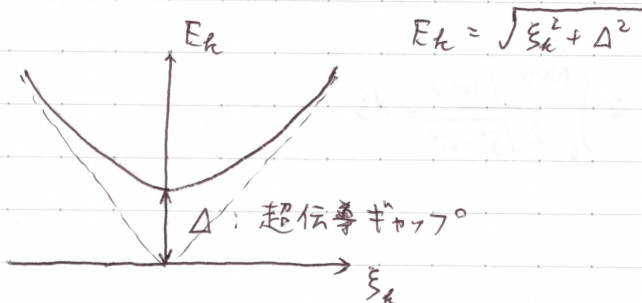 E_k
E_k = √(ξ_k² + Δ²)
Δ : 超伝導ギャップ
ξ_k